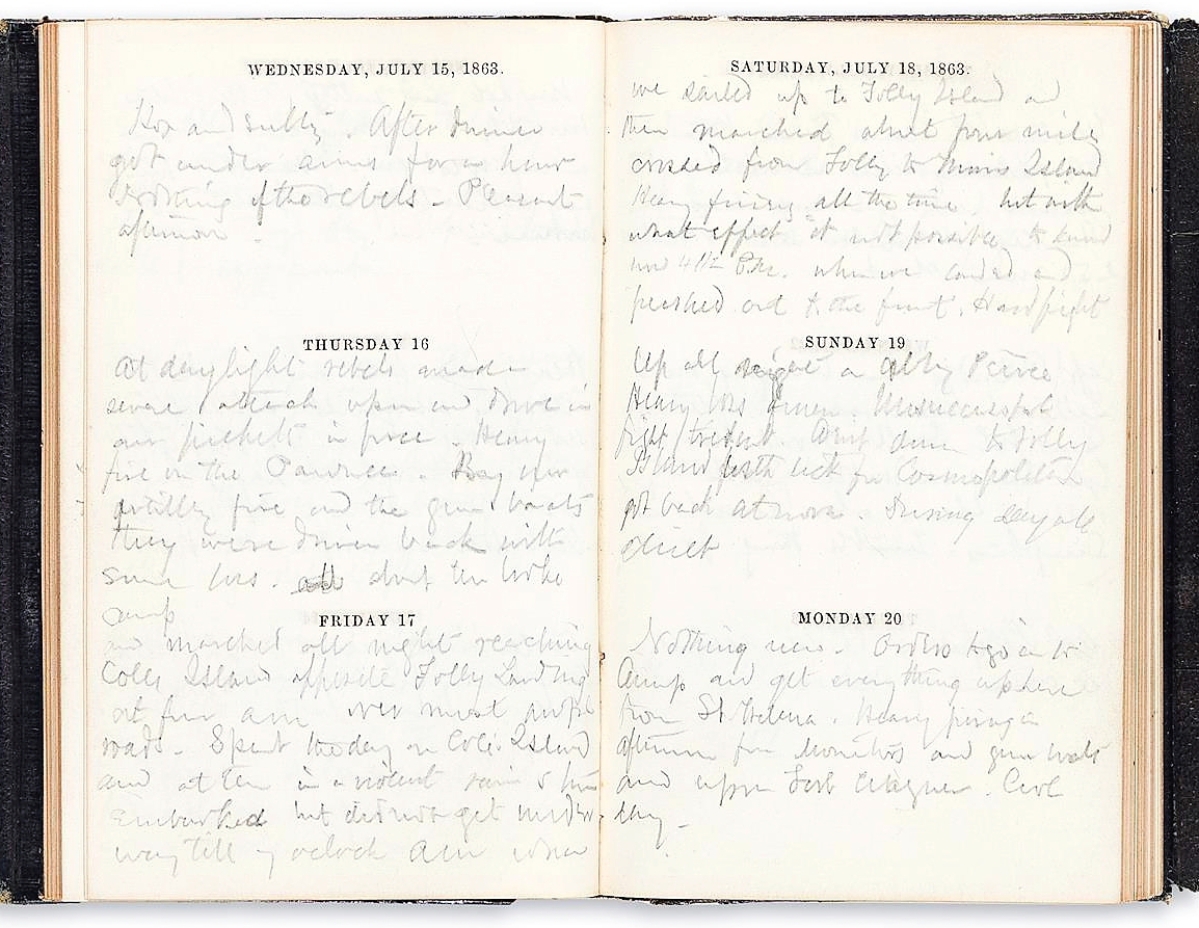 WEDNESDAY, JULY 15, 1863.
Hot and sultry. After dinner
got under arms for an hour
Nothing of the rebels - Pleasant
afternoon -
THURSDAY 16
At daylight rebels made
severe attack upon and drive in
our pickets in force. Heavy
fire on the Pawnee. By our
artillery fire and the gun boats
they were driven back with
some loss. about ten broke
camp
FRIDAY 17
and marched all night reaching
Coles Island opposite Folly Landing
at four am over most
roads. Spent the day on Coles Island
and at ten in a violent rain storm
Embarked but did not get under
way till 7 oclock am when
SATURDAY, JULY 18, 1863.
we sailed up to Folly Island and
then marched about four miles
crossed from Folly to Morris Island
Heavy firing all the time, but with
what effect it not possible to know
P.M. when we landed and
pushed out to the front. Hard fight
SUNDAY 19
Up all night
Heavy loss Unsuccessful
fight Went down to Folly
Island with sick for Cosmopolitan
got back at noon. During day all
quiet
MONDAY 20
Nothing new. Orders to go in to
Camp and get everything up here
from St Helena. Heavy firing in
afternoon from Monitors and gun boats
and upon Fort Wagner. Cool
day -